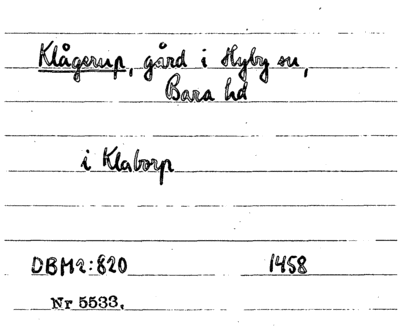 Klågerup, gård i Hyby sn,
Bara hd
i Klaborp
DBM2:820 1458
Nr 5533.